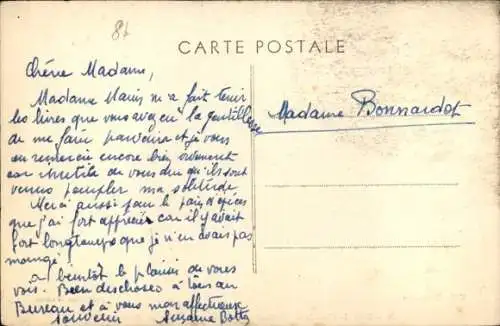 87
CARTE POSTALE
Chère Madame,
Madame Manis m'a fait tenir
les livres que vous avez eu la gentillesse
de me faire parvenir et je vous
en remercie encore bien vivement
car inutile de vous dire qu'ils sont
venus peupler ma solitude
Merci aussi pour le pain d'épices
que j'ai fort apprécié car il y avait
fort longtemps que je n'en avais pas
mangé
à bientôt le plaisir de vous
voir. Bien des choses à tous au
Bureau et à vous mon affectueux
souvenir Suzanne
Madame Bonnardot